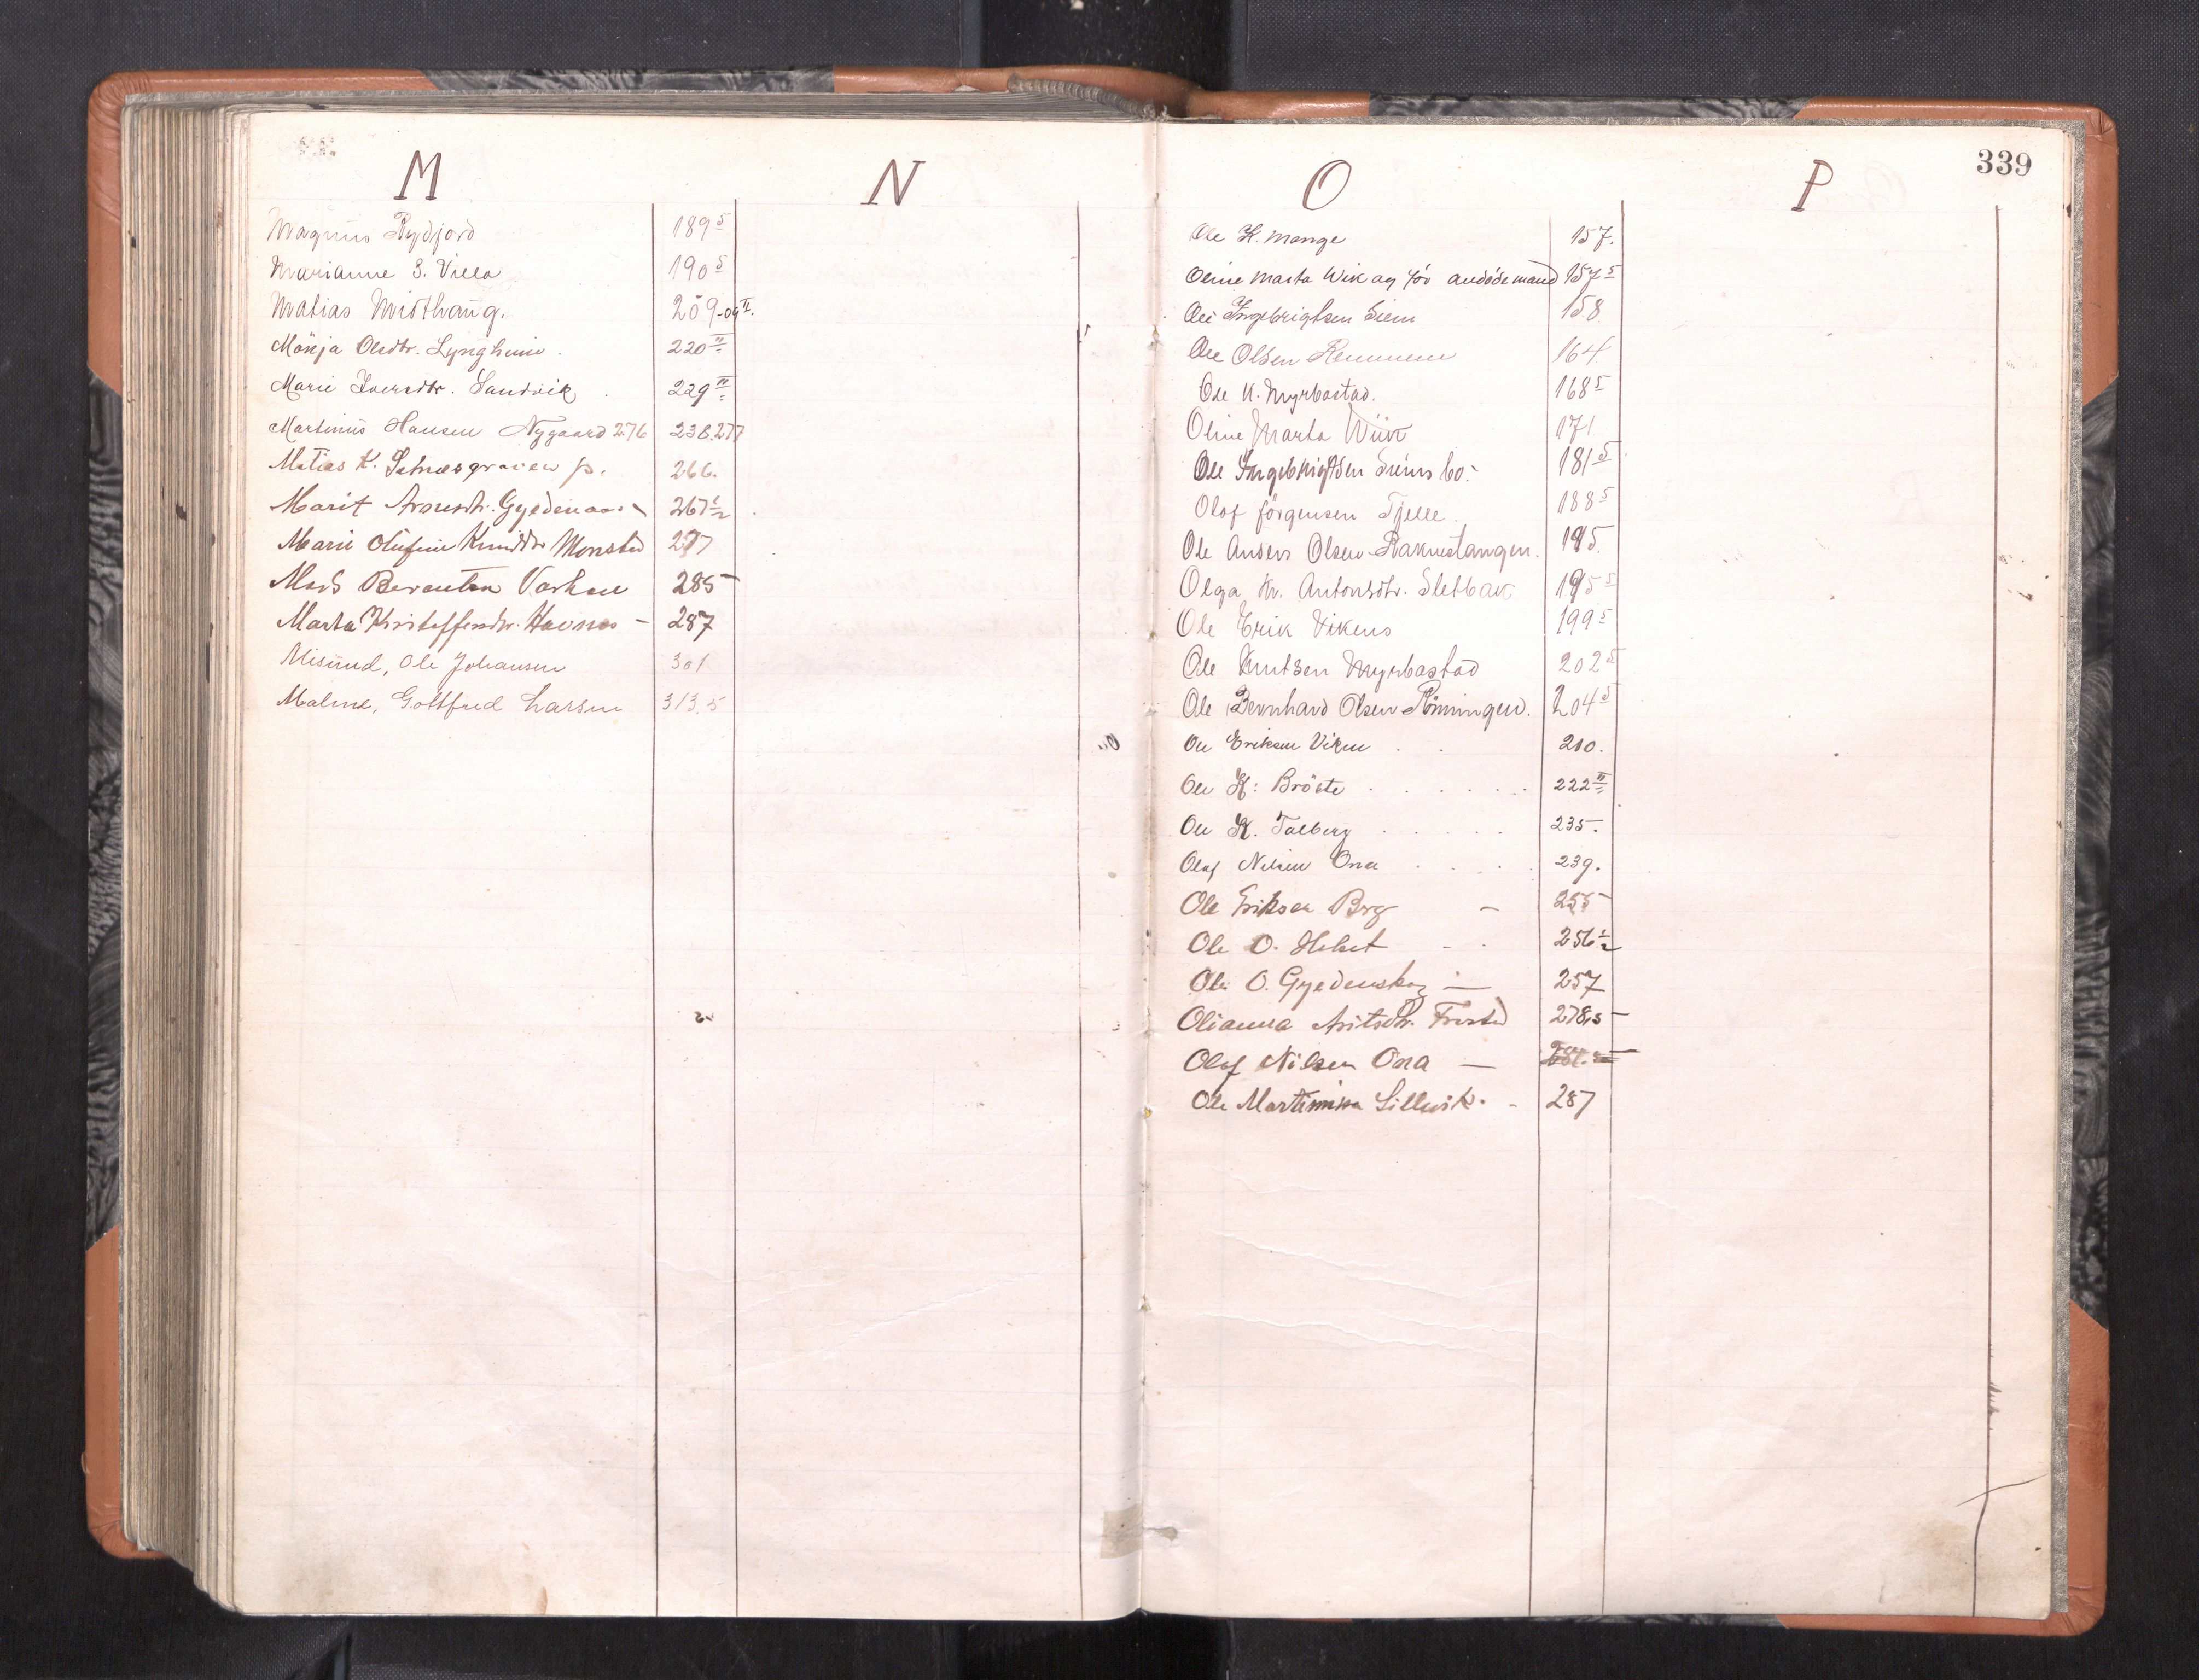 M
Magnus Rydjord 189 5
Marianne S. Villa 190 5
Matias Midthaug. 209-09 II.
Mönja Olsdtr. Lyngheim. 220 II
Marie Iversdtr. Sandvik. 229 II
Martinus Hansen Nygaard 276 238.277
Matias K. p. 266.
Marit Aronsdtr. 267 1/2
Marie Olufine Knudsdtr Monsted 277
Mads Berentsen Varhau 285
Marta Kristoffersdtr. Havnes - 287
Misund, Ole Johansen 301
Malme, Gottfred Larsen 313.5
N
O
339
Ole K. Mange 157.
Oline Marta Wik og för avdöde mand 157 5
Ole Ingebrigtsen Siem 158
Ole Olsen Remmem 164
Ole K. Myrbostad. 168 5
Oline Marta Wiik 171
Ole Ingebrigtsen Siems bo. 181 5
Olaf Jörgensen Tjelle. 188 5
Ole Anders Olsen Raknestangen. 195.
Olga Kr. Antonsdtr. Sletbak 195 5
Ole Erik Vikens 199 5
Ole Knutsen Myrbostad 202 5
Ole Bernhard Olsen Rönningen. 204 5
Ole Eriksen Viken 210.
Ole H: Bröste 222 II
Ole K. Talberg 235.
Olaf Nilsen Ona 239.
Ole Eriksen Berg - 255
Ole O. Helset 256 1/2
Ole O. Gjedenskog - 257
Olianna 278,5
Olaf Nilsen Ona -
Ole Martinius Sillevik. - 287
P